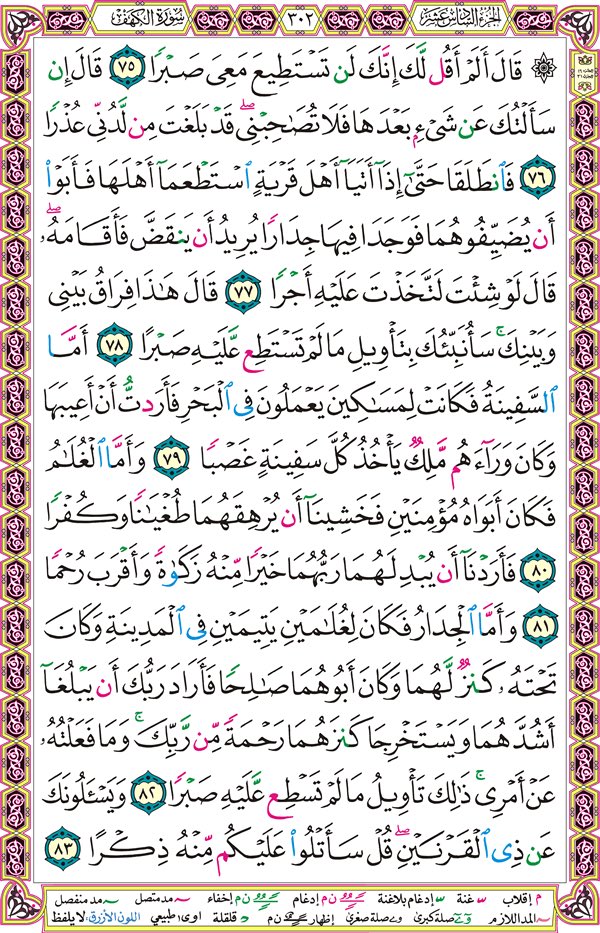 الجزء السادس عشر
٣٠٢
سورة الكهف
۞ قَالَ أَلَمْ أَقُل لَّكَ إِنَّكَ لَن تَسْتَطِيعَ مَعِىَ صَبْرًا ٧٥ قَالَ إِن
سَأَلْتُكَ عَن شَىْءٍۭ بَعْدَهَا فَلَا تُصَـٰحِبْنِى ۖ قَدْ بَلَغْتَ مِن لَّدُنِّى عُذْرًا
٧٦ فَٱنطَلَقَا حَتَّىٰٓ إِذَآ أَتَيَآ أَهْلَ قَرْيَةٍ ٱسْتَطْعَمَآ أَهْلَهَا فَأَبَوْا۟
أَن يُضَيِّفُوهُمَا فَوَجَدَا فِيهَا جِدَارًا يُرِيدُ أَن يَنقَضَّ فَأَقَامَهُۥ ۖ
قَالَ لَوْ شِئْتَ لَتَّخَذْتَ عَلَيْهِ أَجْرًا ٧٧ قَالَ هَـٰذَا فِرَاقُ بَيْنِى
وَبَيْنِكَ ۚ سَأُنَبِّئُكَ بِتَأْوِيلِ مَا لَمْ تَسْتَطِع عَّلَيْهِ صَبْرًا ٧٨ أَمَّا
ٱلسَّفِينَةُ فَكَانَتْ لِمَسَـٰكِينَ يَعْمَلُونَ فِى ٱلْبَحْرِ فَأَرَدتُّ أَنْ أَعِيبَهَا
وَكَانَ وَرَآءَهُم مَّلِكٌ يَأْخُذُ كُلَّ سَفِينَةٍ غَصْبًا ٧٩ وَأَمَّا ٱلْغُلَـٰمُ
فَكَانَ أَبَوَاهُ مُؤْمِنَيْنِ فَخَشِينَآ أَن يُرْهِقَهُمَا طُغْيَـٰنًا وَكُفْرًا
٨٠ فَأَرَدْنَآ أَن يُبْدِلَهُمَا رَبُّهُمَا خَيْرًا مِّنْهُ زَكَوٰةً وَأَقْرَبَ رُحْمًا
٨١ وَأَمَّا ٱلْجِدَارُ فَكَانَ لِغُلَـٰمَيْنِ يَتِيمَيْنِ فِى ٱلْمَدِينَةِ وَكَانَ
تَحْتَهُۥ كَنزٌ لَّهُمَا وَكَانَ أَبُوهُمَا صَـٰلِحًا فَأَرَادَ رَبُّكَ أَن يَبْلُغَآ
أَشُدَّهُمَا وَيَسْتَخْرِجَا كَنزَهُمَا رَحْمَةً مِّن رَّبِّكَ ۚ وَمَا فَعَلْتُهُۥ
عَنْ أَمْرِى ۚ ذَٰلِكَ تَأْوِيلُ مَا لَمْ تَسْطِع عَّلَيْهِ صَبْرًا ٨٢ وَيَسْـَٔلُونَكَ
عَن ذِى ٱلْقَرْنَيْنِ ۖ قُلْ سَأَتْلُوا۟ عَلَيْكُم مِّنْهُ ذِكْرًا ٨٣